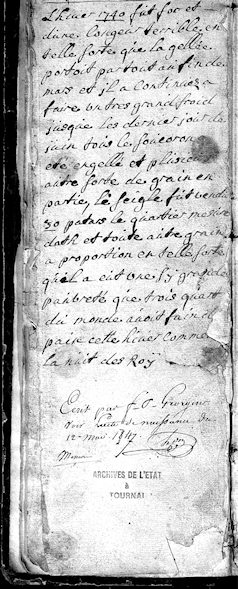 Lhiuer 1740 fut for et
dure. Longeur terrible en
telle forte que la gellée
portoit par tout au fin de
mars et jl a Continuez a
faire un tres grand froid
jusque les dernier jour de
juin tous le soucoron
été engellé et plusieur
autre forte de grain en
partie, le seigle fut vendu
30 patars le quartier mesure
dath et toute autre grain
a proportion en telle forte
quil a eut une sy grande
pauvreté que trois quart
du monde avoit faim de
pain cette hiuer comme
la nuit des Roy
Ecrit par
voir de naissance du
12 mai 1847.
ARCHIVES DE L'ETAT
à
TOURNAI